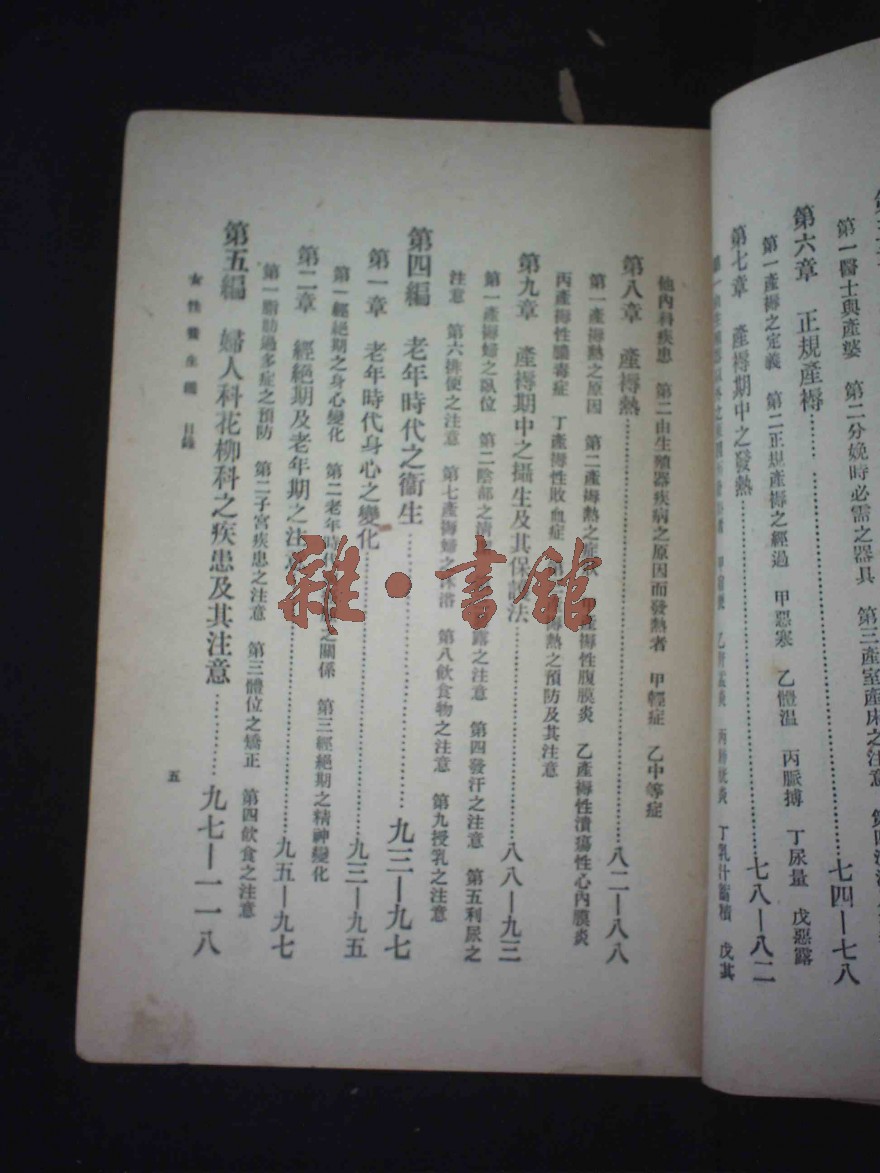 第一醫士與產婆　第二分娩時必需之器具　第三產室產床之注意　第四
第六章　正規產褥……七四—七八
第一產褥之定義　第二正規產褥之經過　甲惡寒　乙體溫　丙脈搏　丁尿量　戊惡露
第七章　產褥期中之發熱……七八—八二
丁乳汁鬱積　戊其
他內科疾患　第二由生殖器疾病之原因而發熱者　甲輕症　乙中等症
第八章　產褥熱……八二—八八
第一產褥熱之原因　第二產褥熱之症狀　產褥性腹膜炎　乙產褥性潰瘍性心內膜炎
丙產褥性膿毒症　丁產褥性敗血症　褥熱之預防及其注意
第九章　產褥期中之攝生及其保護法……八八—九三
第一產褥婦之臥位　第二陰部之清　露之注意　第四發汗之注意　第五利尿之
注意　第六排便之注意　第七產褥婦之沐浴　第八飲食物之注意　第九授乳之注意
第四編　老年時代之衞生……九三—九七
第一章　老年時代身心之變化……九三—九五
第一經絕期之身心變化　第二老年時代　之關係　第三經絕期之精神變化
第二章　經絕期及老年期之注意……九五—九七
第一脂肪過多症之預防　第二子宮疾患之注意　第三體位之矯正　第四飲食之注意
第五編　婦人科花柳科之疾患及其注意……九七—一一八
女性養生鑑　目錄
五
雜·書館